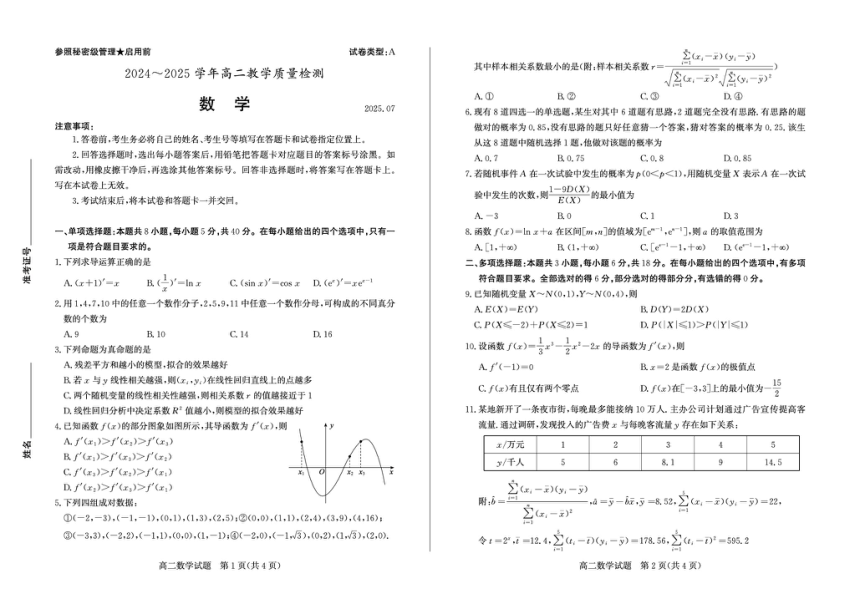 参照秘密级管理★启用前 试卷类型:A
2024～2025 学年高二教学质量检测
数 学
2025.07
注意事项:
1.答卷前,考生务必将自己的姓名、考生号等填写在答题卡和试卷指定位置上。
2.回答选择题时,选出每小题答案后,用铅笔把答题卡对应题目的答案标号涂黑。如
需改动,用橡皮擦干净后,再选涂其他答案标号。回答非选择题时,将答案写在答题卡上。
写在本试卷上无效。
3.考试结束后,将本试卷和答题卡一并交回。
一、单项选择题:本题共 8 小题,每小题 5 分,共 40 分。在每小题给出的四个选项中,只有一
项是符合题目要求的。
1.下列求导运算正确的是
A.(x+1)′=x B.(1/x)′=ln x C.(sin x)′=cos x D.(eˣ)′=xeˣ⁻¹
2.用 1,4,7,10 中的任意一个数作分子,2,5,9,11 中任意一个数作分母,可构成的不同真分
数的个数为
A.9 B.10 C.14 D.16
3.下列命题为真命题的是
A.残差平方和越小的模型,拟合的效果越好
B.若 x 与 y 线性相关越强,则(xᵢ,yᵢ)在线性回归直线上的点越多
C.两个随机变量的线性相关性越强,则相关系数 r 的值越接近于 1
D.线性回归分析中决定系数 R² 值越小,则模型的拟合效果越好
4.已知函数 f(x)的部分图象如图所示,其导函数为 f′(x),则
A.f′(x₁)>f′(x₂)>f′(x₃)
B.f′(x₁)>f′(x₃)>f′(x₂)
C.f′(x₃)>f′(x₂)>f′(x₁)
D.f′(x₂)>f′(x₃)>f′(x₁)
y
x₁ O x₂ x₃ x
5.下列四组成对数据:
①(−2,−3),(−1,−1),(0,1),(1,3),(2,5);②(0,0),(1,1),(2,4),(3,9),(4,16);
③(−3,3),(−2,2),(−1,1),(0,0),(1,−1);④(−2,0),(−1,√3),(0,2),(1,√3),(2,0).
高二数学试题 第 1 页(共 4 页)
准考证号
姓名
其中样本相关系数最小的是(附:样本相关系数 r=∑ᵢ₌₁ⁿ(xᵢ−x̄)(yᵢ−ȳ)/(√∑ᵢ₌₁ⁿ(xᵢ−x̄)² √∑ᵢ₌₁ⁿ(yᵢ−ȳ)²))
A.① B.② C.③ D.④
6.现有 8 道四选一的单选题,某生对其中 6 道题有思路,2 道题完全没有思路.有思路的题
做对的概率为 0.85,没有思路的题只好任意猜一个答案,猜对答案的概率为 0.25.该生
从这 8 道题中随机选择 1 题,他做对该题的概率为
A.0.7 B.0.75 C.0.8 D.0.85
7.若随机事件 A 在一次试验中发生的概率为 p(0<p<1),用随机变量 X 表示 A 在一次试
验中发生的次数,则(1−9D(X))/E(X)的最小值为
A.−3 B.0 C.1 D.3
8.函数 f(x)=ln x+a 在区间[m,n]的值域为[eᵐ⁻¹,eⁿ⁻¹],则 a 的取值范围为
A.[1,+∞) B.(1,+∞) C.[eᵉ⁻¹−1,+∞) D.(eᵉ⁻¹−1,+∞)
二、多项选择题:本题共 3 小题,每小题 6 分,共 18 分。在每小题给出的四个选项中,有多项
符合题目要求。全部选对的得 6 分,部分选对的得部分分,有选错的得 0 分。
9.已知随机变量 X～N(0,1),Y～N(0,4),则
A.E(X)=E(Y) B.D(Y)=2D(X)
C.P(X⩽−2)+P(X⩽2)=1 D.P(|X|⩽1)>P(|Y|⩽1)
10.设函数 f(x)=1/3x³−1/2x²−2x 的导函数为 f′(x),则
A.f′(−1)=0 B.x=2 是函数 f(x)的极值点
C.f(x)有且仅有两个零点 D.f(x)在[−3,3]上的最小值为−15/2
11.某地新开了一条夜市街,每晚最多能接纳 10 万人.主办公司计划通过广告宣传提高客
流量.通过调研,发现投入的广告费 x 与每晚客流量 y 存在如下关系:
x/万元 1 2 3 4 5
y/千人 5 6 8.1 9 14.5
附:b̂=∑ᵢ₌₁ⁿ(xᵢ−x̄)(yᵢ−ȳ)/∑ᵢ₌₁ⁿ(xᵢ−x̄)²,â=ȳ−b̂x̄,ȳ=8.52,∑ᵢ₌₁⁵(xᵢ−x̄)(yᵢ−ȳ)=22,
令 t=2ˣ,t̄=12.4,∑ᵢ₌₁⁵(tᵢ−t̄)(yᵢ−ȳ)=178.56,∑ᵢ₌₁⁵(tᵢ−t̄)²=595.2
高二数学试题 第 2 页(共 4 页)